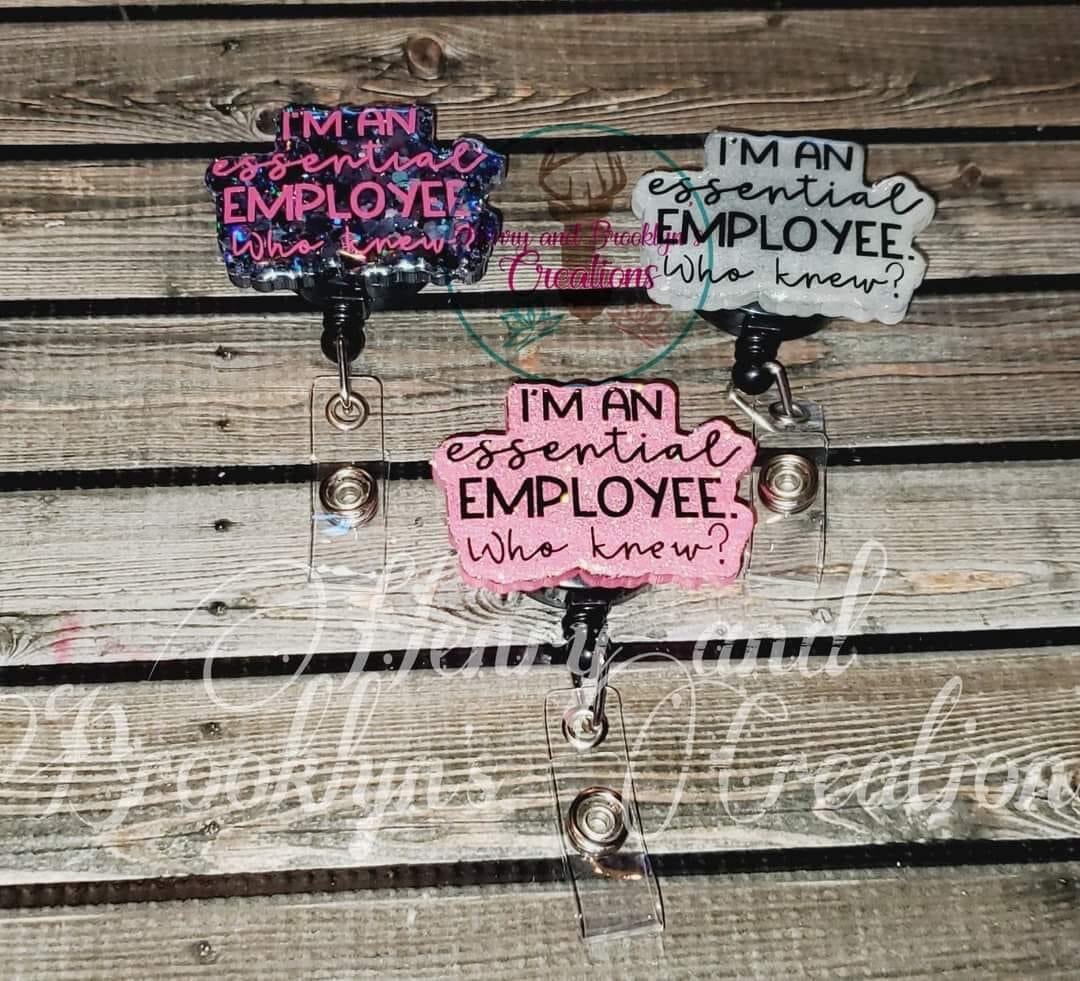 I'M AN
essential
EMPLOYEE.
Who knew?
I'M AN
essential
EMPLOYEE.
Who knew?
and Brooklyn's
Creations
I'M AN
essential
EMPLOYEE.
Who knew?
Henry and
Brooklyn's Creations